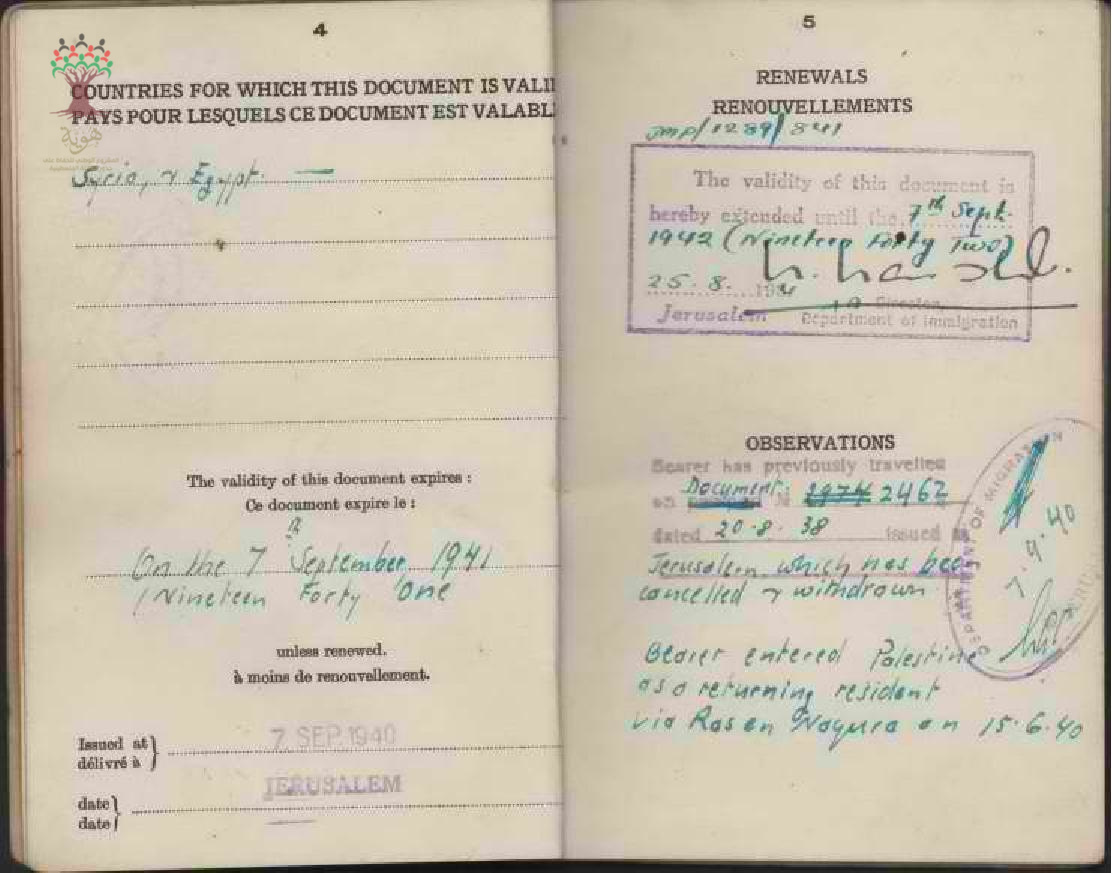 4
COUNTRIES FOR WHICH THIS DOCUMENT IS VALI
PAYS POUR LESQUELS CE DOCUMENT EST VALABL
هوية
Syria, & Egypt. —
The validity of this document expires :
Ce document expire le :
On the 7 September 1941
(Nineteen Forty One
unless renewed.
à moins de renouvellement.
7 SEP. 1940
Issued at
délivré à
JERUSALEM
date
date
5
RENEWALS
RENOUVELLEMENTS
JMP/1289/841
The validity of this document is
hereby extended until the 7th Sept.
1942 (Nineteen Forty Two)
25.8. 1941
Director,
Jerusalem Department of immigration
OBSERVATIONS
Bearer has previously travelled
on Document: N 2462
dated 20.8.38 issued
Jerusalem which has been
cancelled & withdrawn
DEPARTMENT OF MIGRATION
7.9.40
Bearer entered Palestine
as a returning resident
via Ras en Naqura on 15.6.40